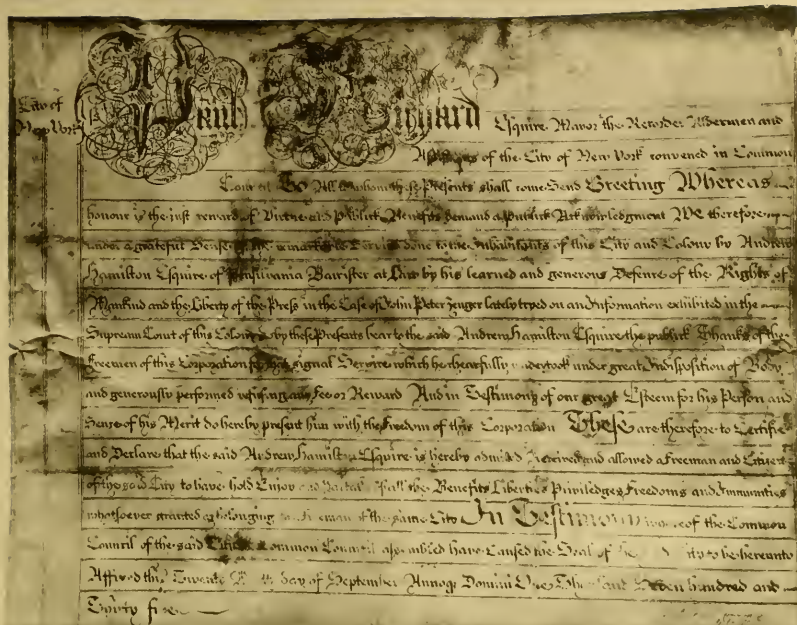 City of
New York
Paul Richard Esquire Mayor the Recorder Aldermen and
Assistants of the City of New York convened in Common
Council To All to whom these Presents shall come Send Greeting Whereas
honour is the just reward of Virtue and publick Benefits demand a publick Acknowledgment We therefore
under a grateful Sense of the remarkable Service done to the Inhabitants of this City and Colony by Andrew
Hamilton Esquire of Pensilvania Barrister at Law by his learned and generous Defence of the Rights of
Mankind and the Liberty of the Press in the Case of John Peter Zenger lately tryed on an Information exhibited in the
Supream Court of this Colony do by these Presents bear to the said Andrew Hamilton Esquire the publick Thanks of the
Freemen of this Corporation for that signal Service which he chearfully undertook under great Indisposition of Body
and generously performed refusing any Fee or Reward And in Testimony of our great Esteem for his Person and
Sense of his Merit do hereby present him with the Freedom of this Corporation These are therefore to Certifie
and Declare that the said Andrew Hamilton Esquire is hereby admitted received and allowed a Freeman and Citizen
of the said City to have hold Enjoy and all the Benefits Liberties Priviledges Freedoms and Immunities
whatsoever granted or belonging to a Freeman of the same City In Testimony whereof the Common
Council of the said City in Common Council assembled have Caused the Seal of the City to be hereunto
Affixed this Twenty day of September Annoq Domini One Thousand Seven hundred and
Thirty five